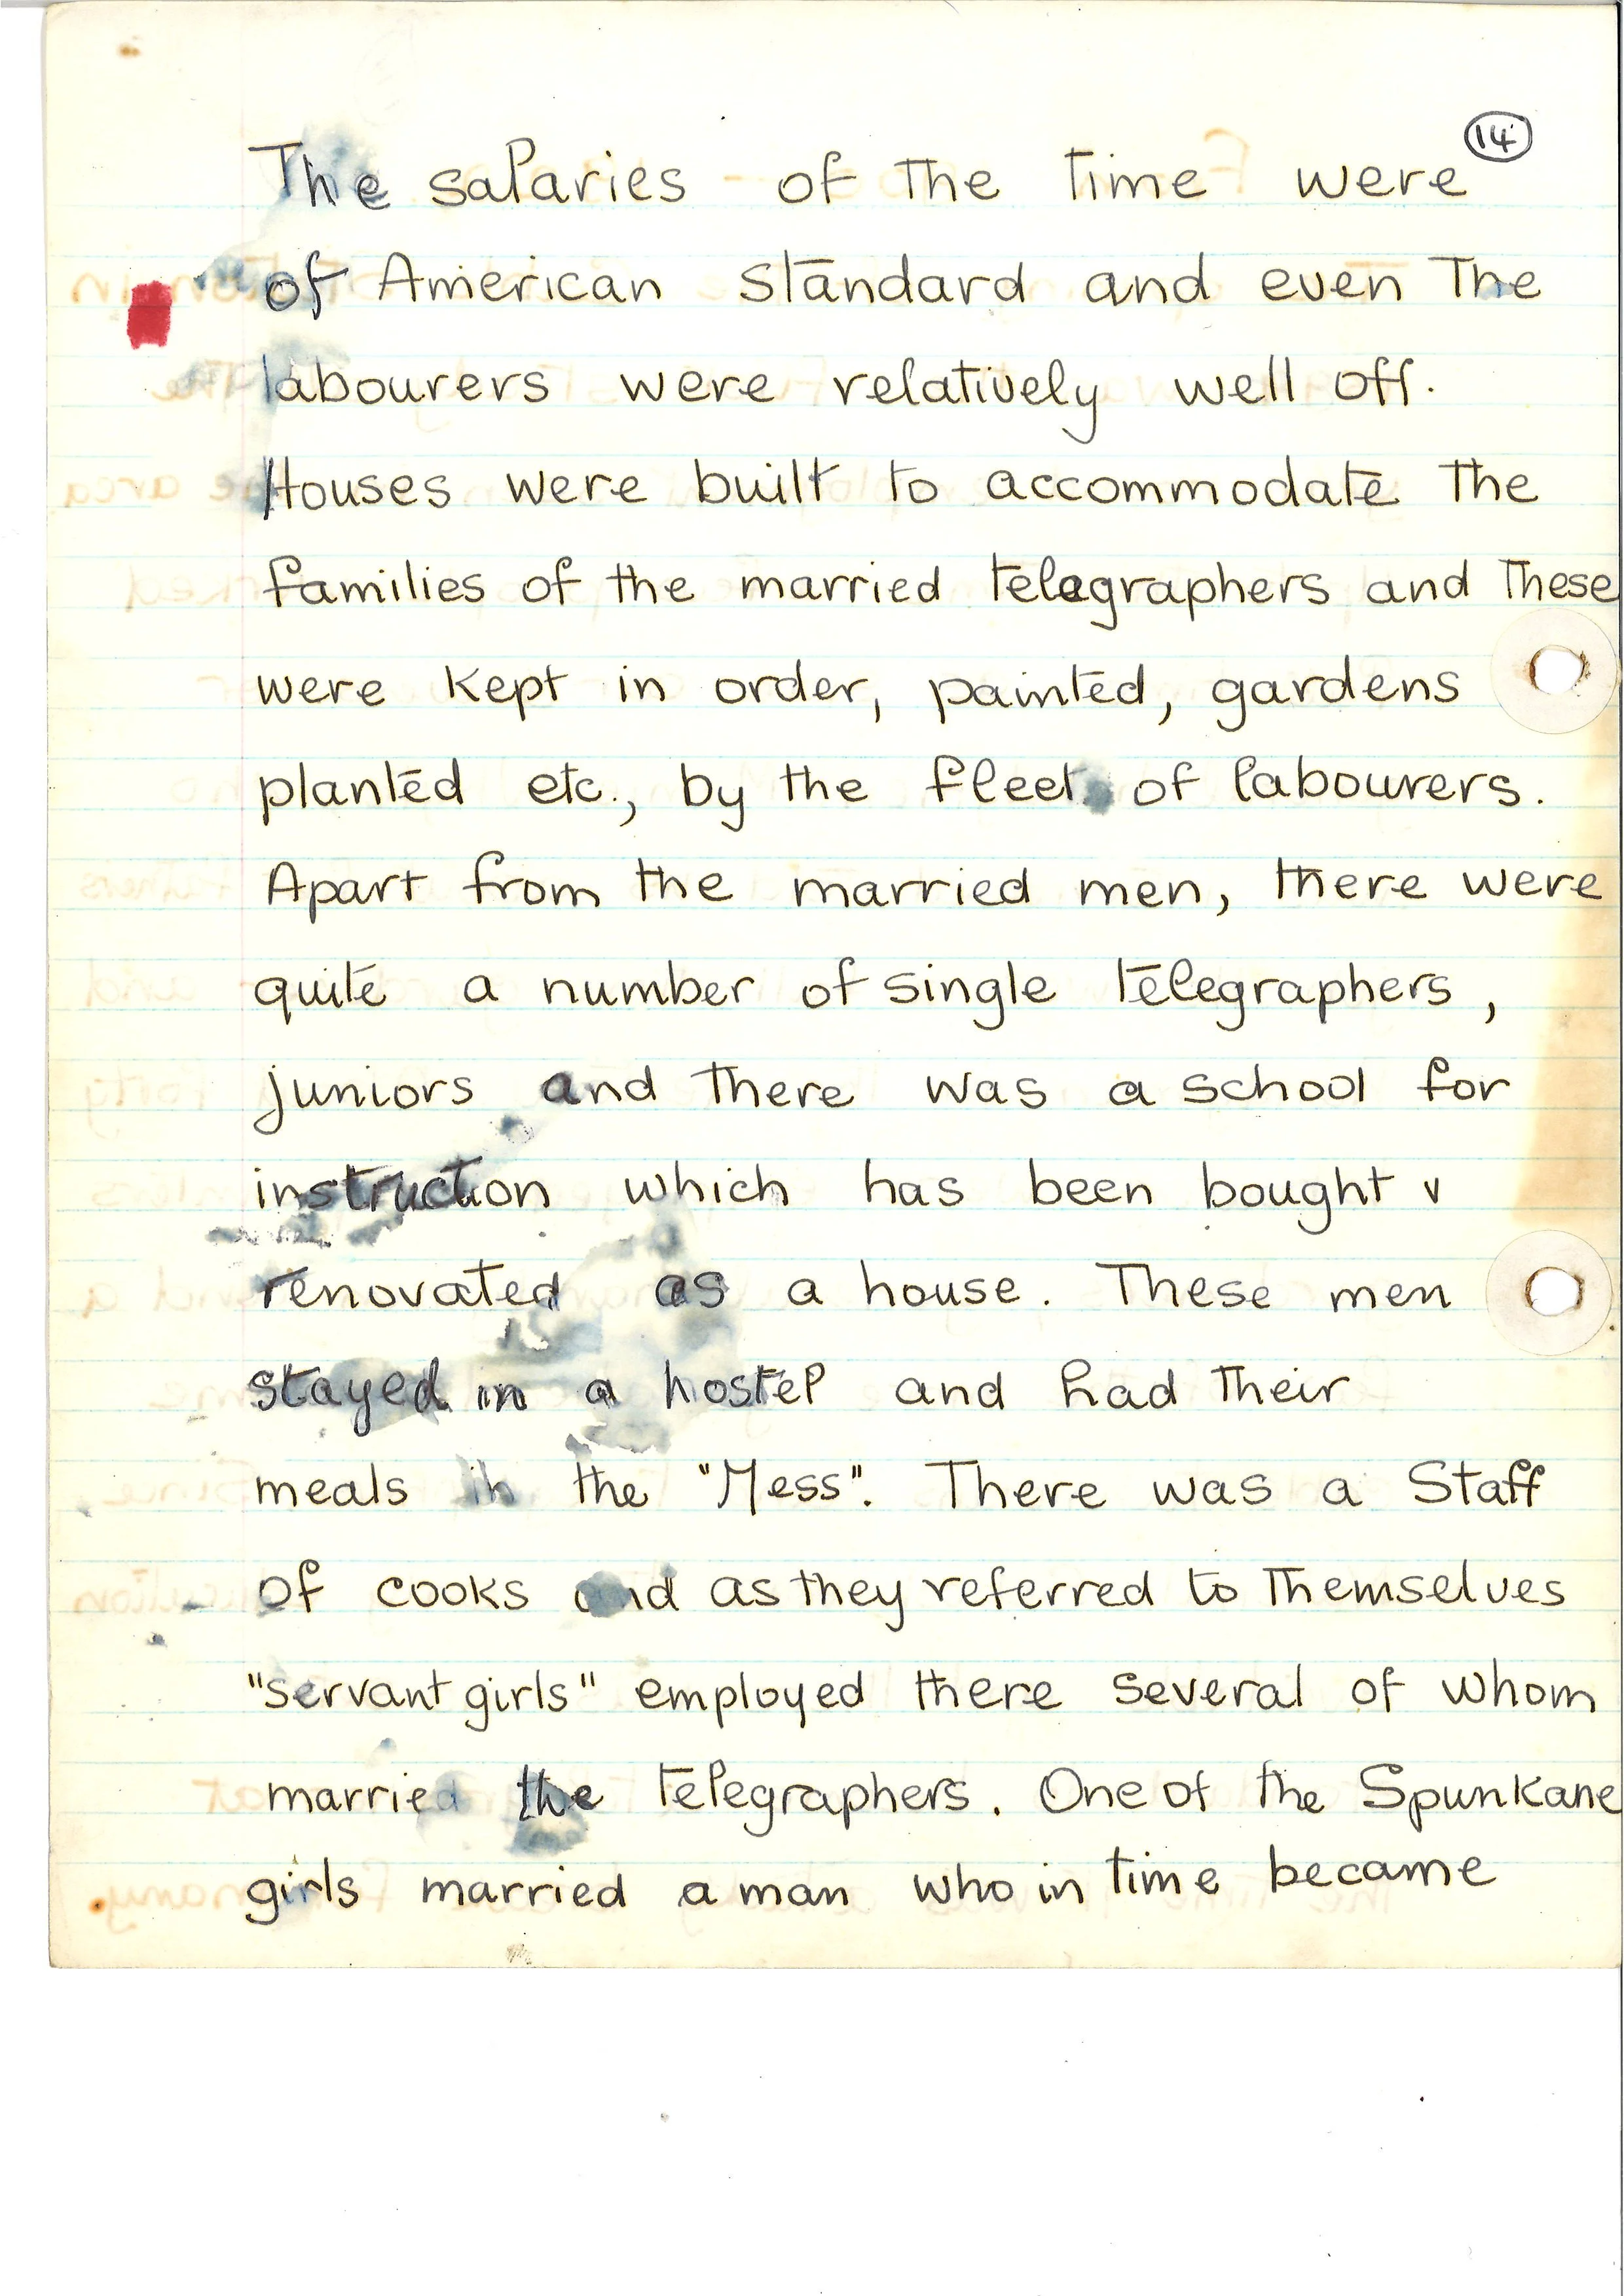 14
The salaries of the time were
of American standard and even the
labourers were relatively well off.
Houses were built to accommodate the
families of the married telegraphers and these
were kept in order, painted, gardens
planted etc., by the fleet of labourers.
Apart from the married men, there were
quite a number of single telegraphers,
juniors and there was a school for
instruction which has been bought v
renovated as a house. These men
stayed in a hostel and had their
meals in the "Mess". There was a Staff
of cooks and as they referred to themselves
"servant girls" employed there several of whom
married the telegraphers. One of the Spunkane
girls married a man who in time became